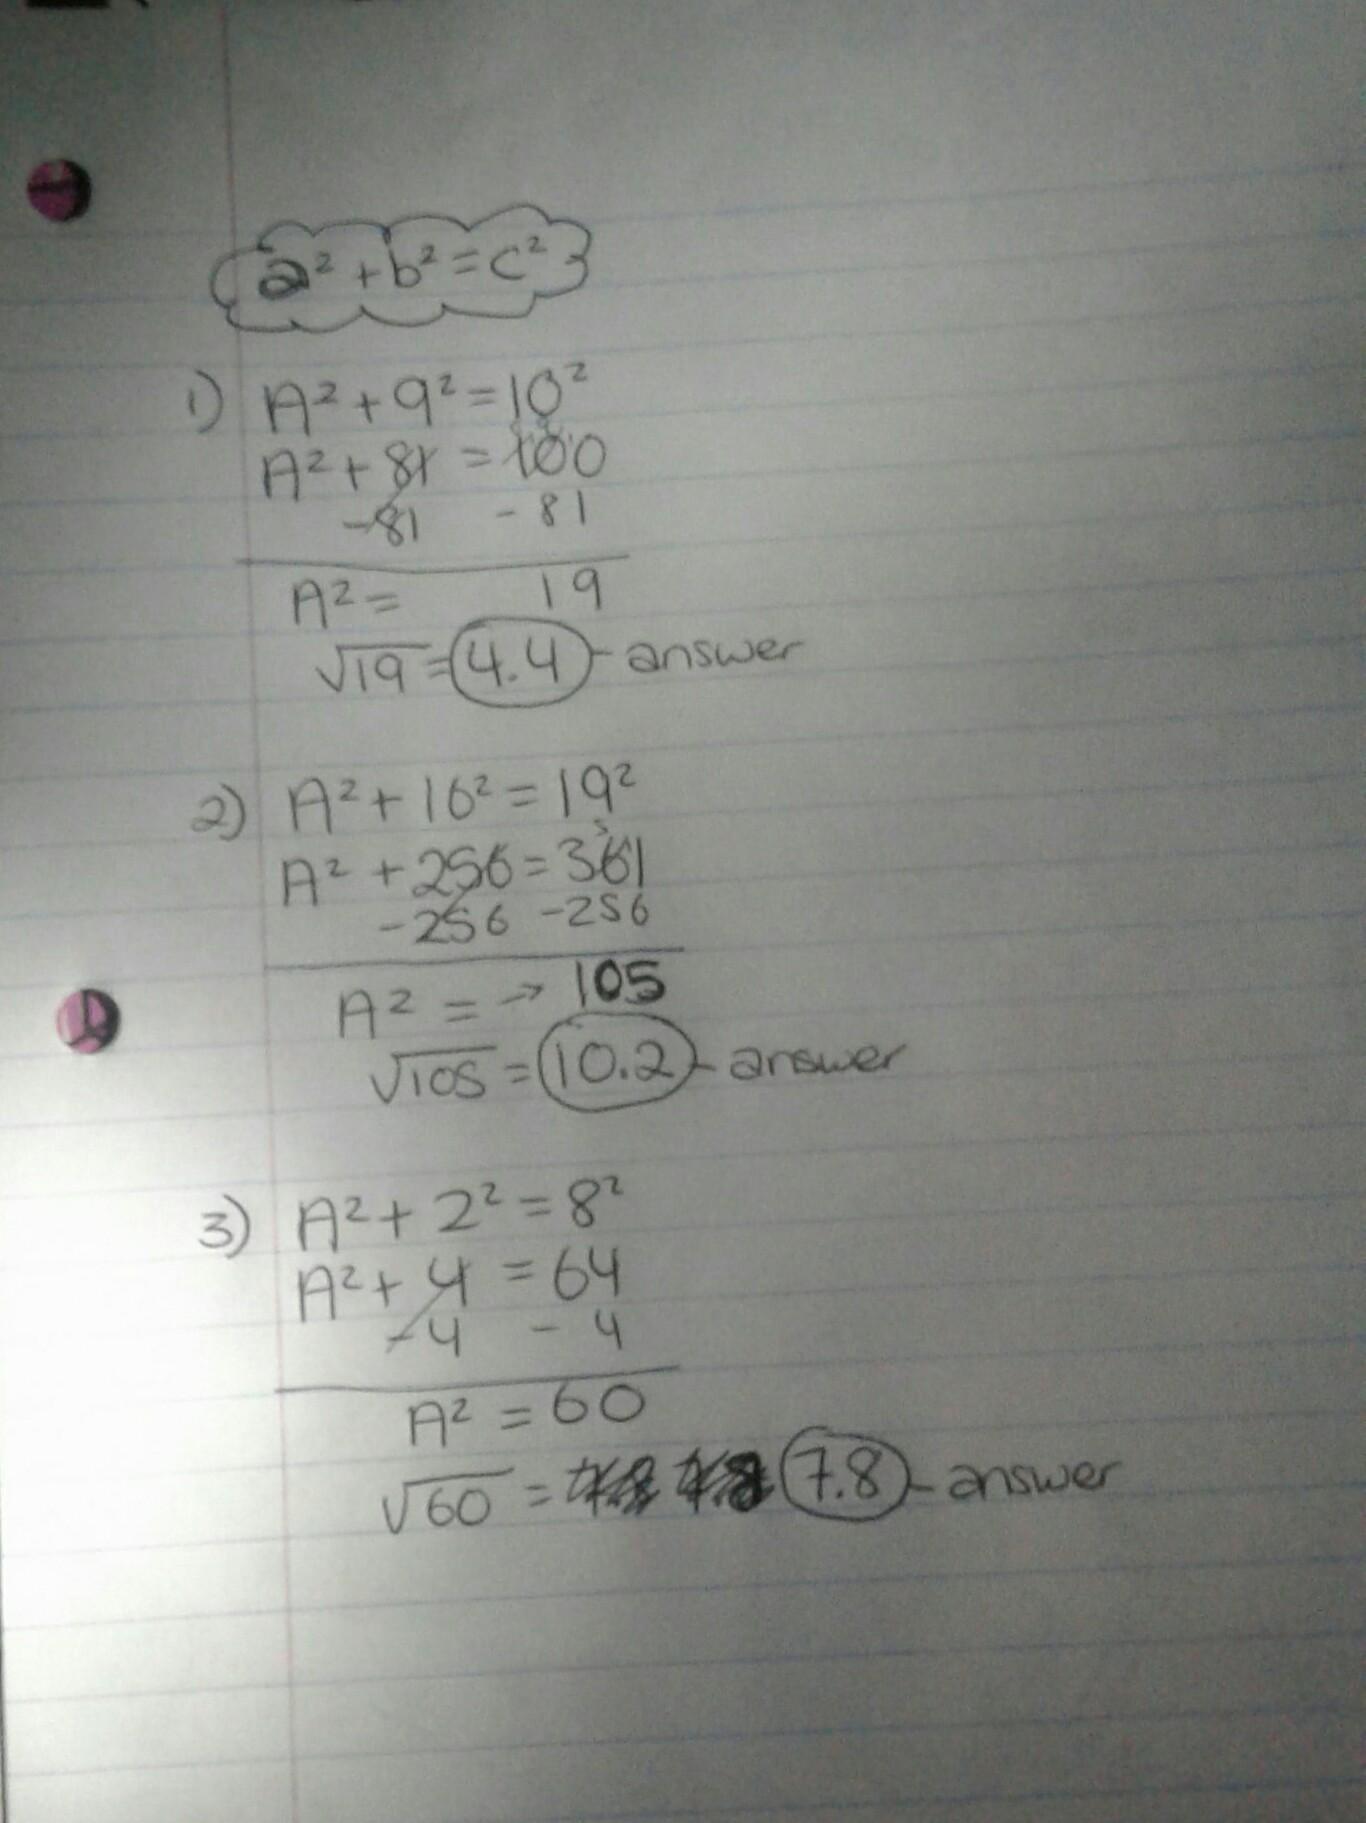 a² + b² = c²
1) A² + 9² = 10²
A² + 81 = 100
-81 - 81
A² = 19
√19 = 4.4 - answer
2) A² + 16² = 19²
5
A² + 256 = 361
-256 -256
A² = → 105
√105 = 10.2 - answer
3) A² + 2² = 8²
A² + 4 = 64
-4 - 4
A² = 60
√60 = 7.8 - answer